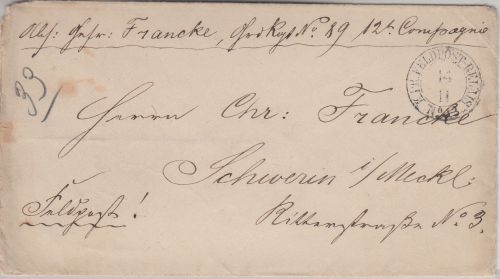 Abs: Gefr: Francke, Gr. Rgt No 89 12te Compagnie
33
K.PR.FELDPOST-RELAIS
14
11
No
Herrn Chr: Francke
Schwerin i/Meckl:
Feldpost!
Ritterstraße No 3.